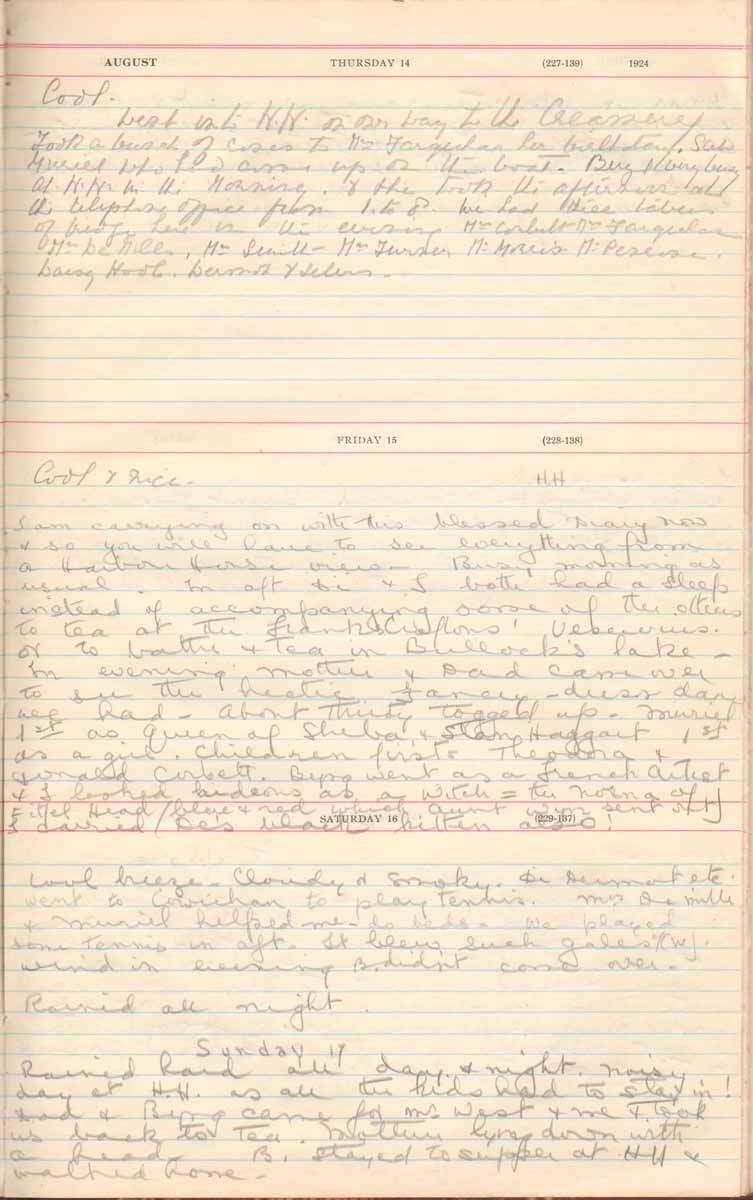 AUGUST THURSDAY 14 (227-139) 1924
Cool.
Went into H.H. on our way to the Creamery
Took a bunch of roses to Mrs Farquhar her birthday. Saw
Muriel who had come up on the boat. Very busy
at H.H. in the Morning. & she took the afternoon at
the telephone office from 1. to 8. We had three tables
of bridge here in the evening Mrs Corbett Mrs Farquhar
Mrs De Mille, Mrs Smith Mr Turner Mr Morris Mr
Daisy Dermot &
FRIDAY 15 (228-138)
Cool & Nice. H.H
I am carrying on with this blessed Diary now
& so you will have to see everything from
a Harbour House view - Busy morning as
usual. In aft Di & I both had a sleep
instead of accompanying some of the others
to tea at the Frank Croftons' Vesuvius.
or to bathe & tea in Bullock's lake -
In evening mother & Dad came over
to see the hectic Fancy-dress dance
we had - About thirty togged up. Muriel
1st as Queen of Sheba, & Stan Haggart 1st
as a girl. Children first = Theodora &
Donald Corbett. Byng went as a French Artist
& I looked hideous as a witch = the
Head (blue & red which Aunt Wyn sent out)
I carried De's black kitten also!
SATURDAY 16 (229-137)
Cool breeze - Cloudy & smoky. Di Dermot etc.
went to Cowichan to play tennis. Mrs De Mille
& Muriel helped me to beds. We played
some tennis in aft. It blew such gales (W).
wind in evening B. didn't come over -
Rained all night.
Sunday 17
Rained hard all day & night. Noisy
day at H.H. as all the kids had to stay in!
Dad & Byng came for Mrs West & me & took
us back to tea. Mother lying down with
a head - B. stayed to supper at HH &
walked home -